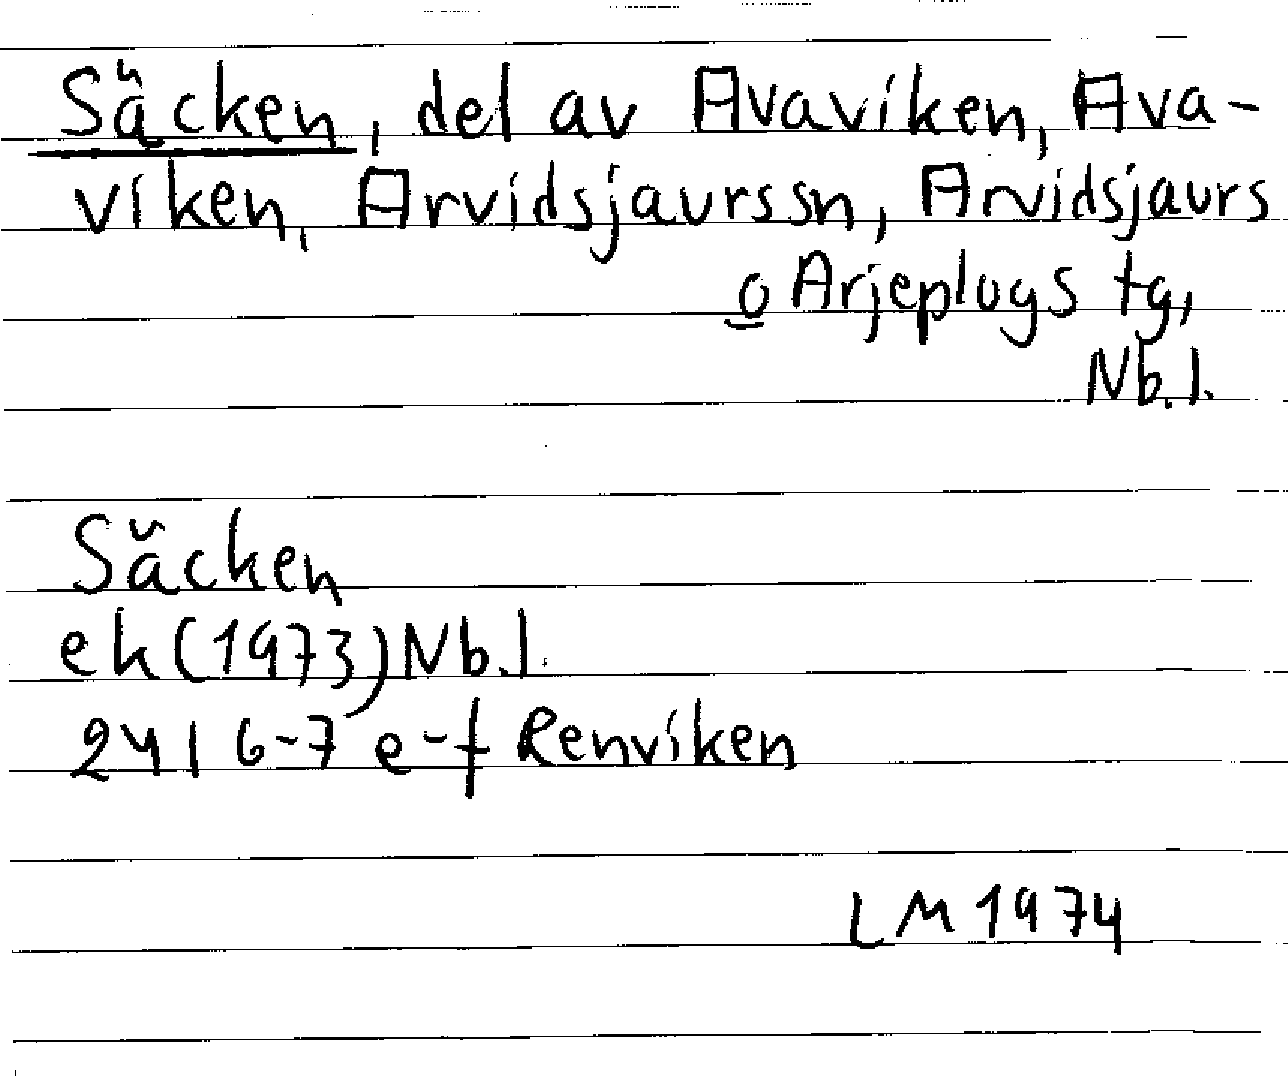 Säcken, del av Avaviken, Ava-
viken, Arvidsjaurssn, Arvidsjaurs
o Arjeplogs tg,
Nb.l.
Säcken
ek(1973)Nb.l.
241 6-7 e-f Renviken
LM 1974